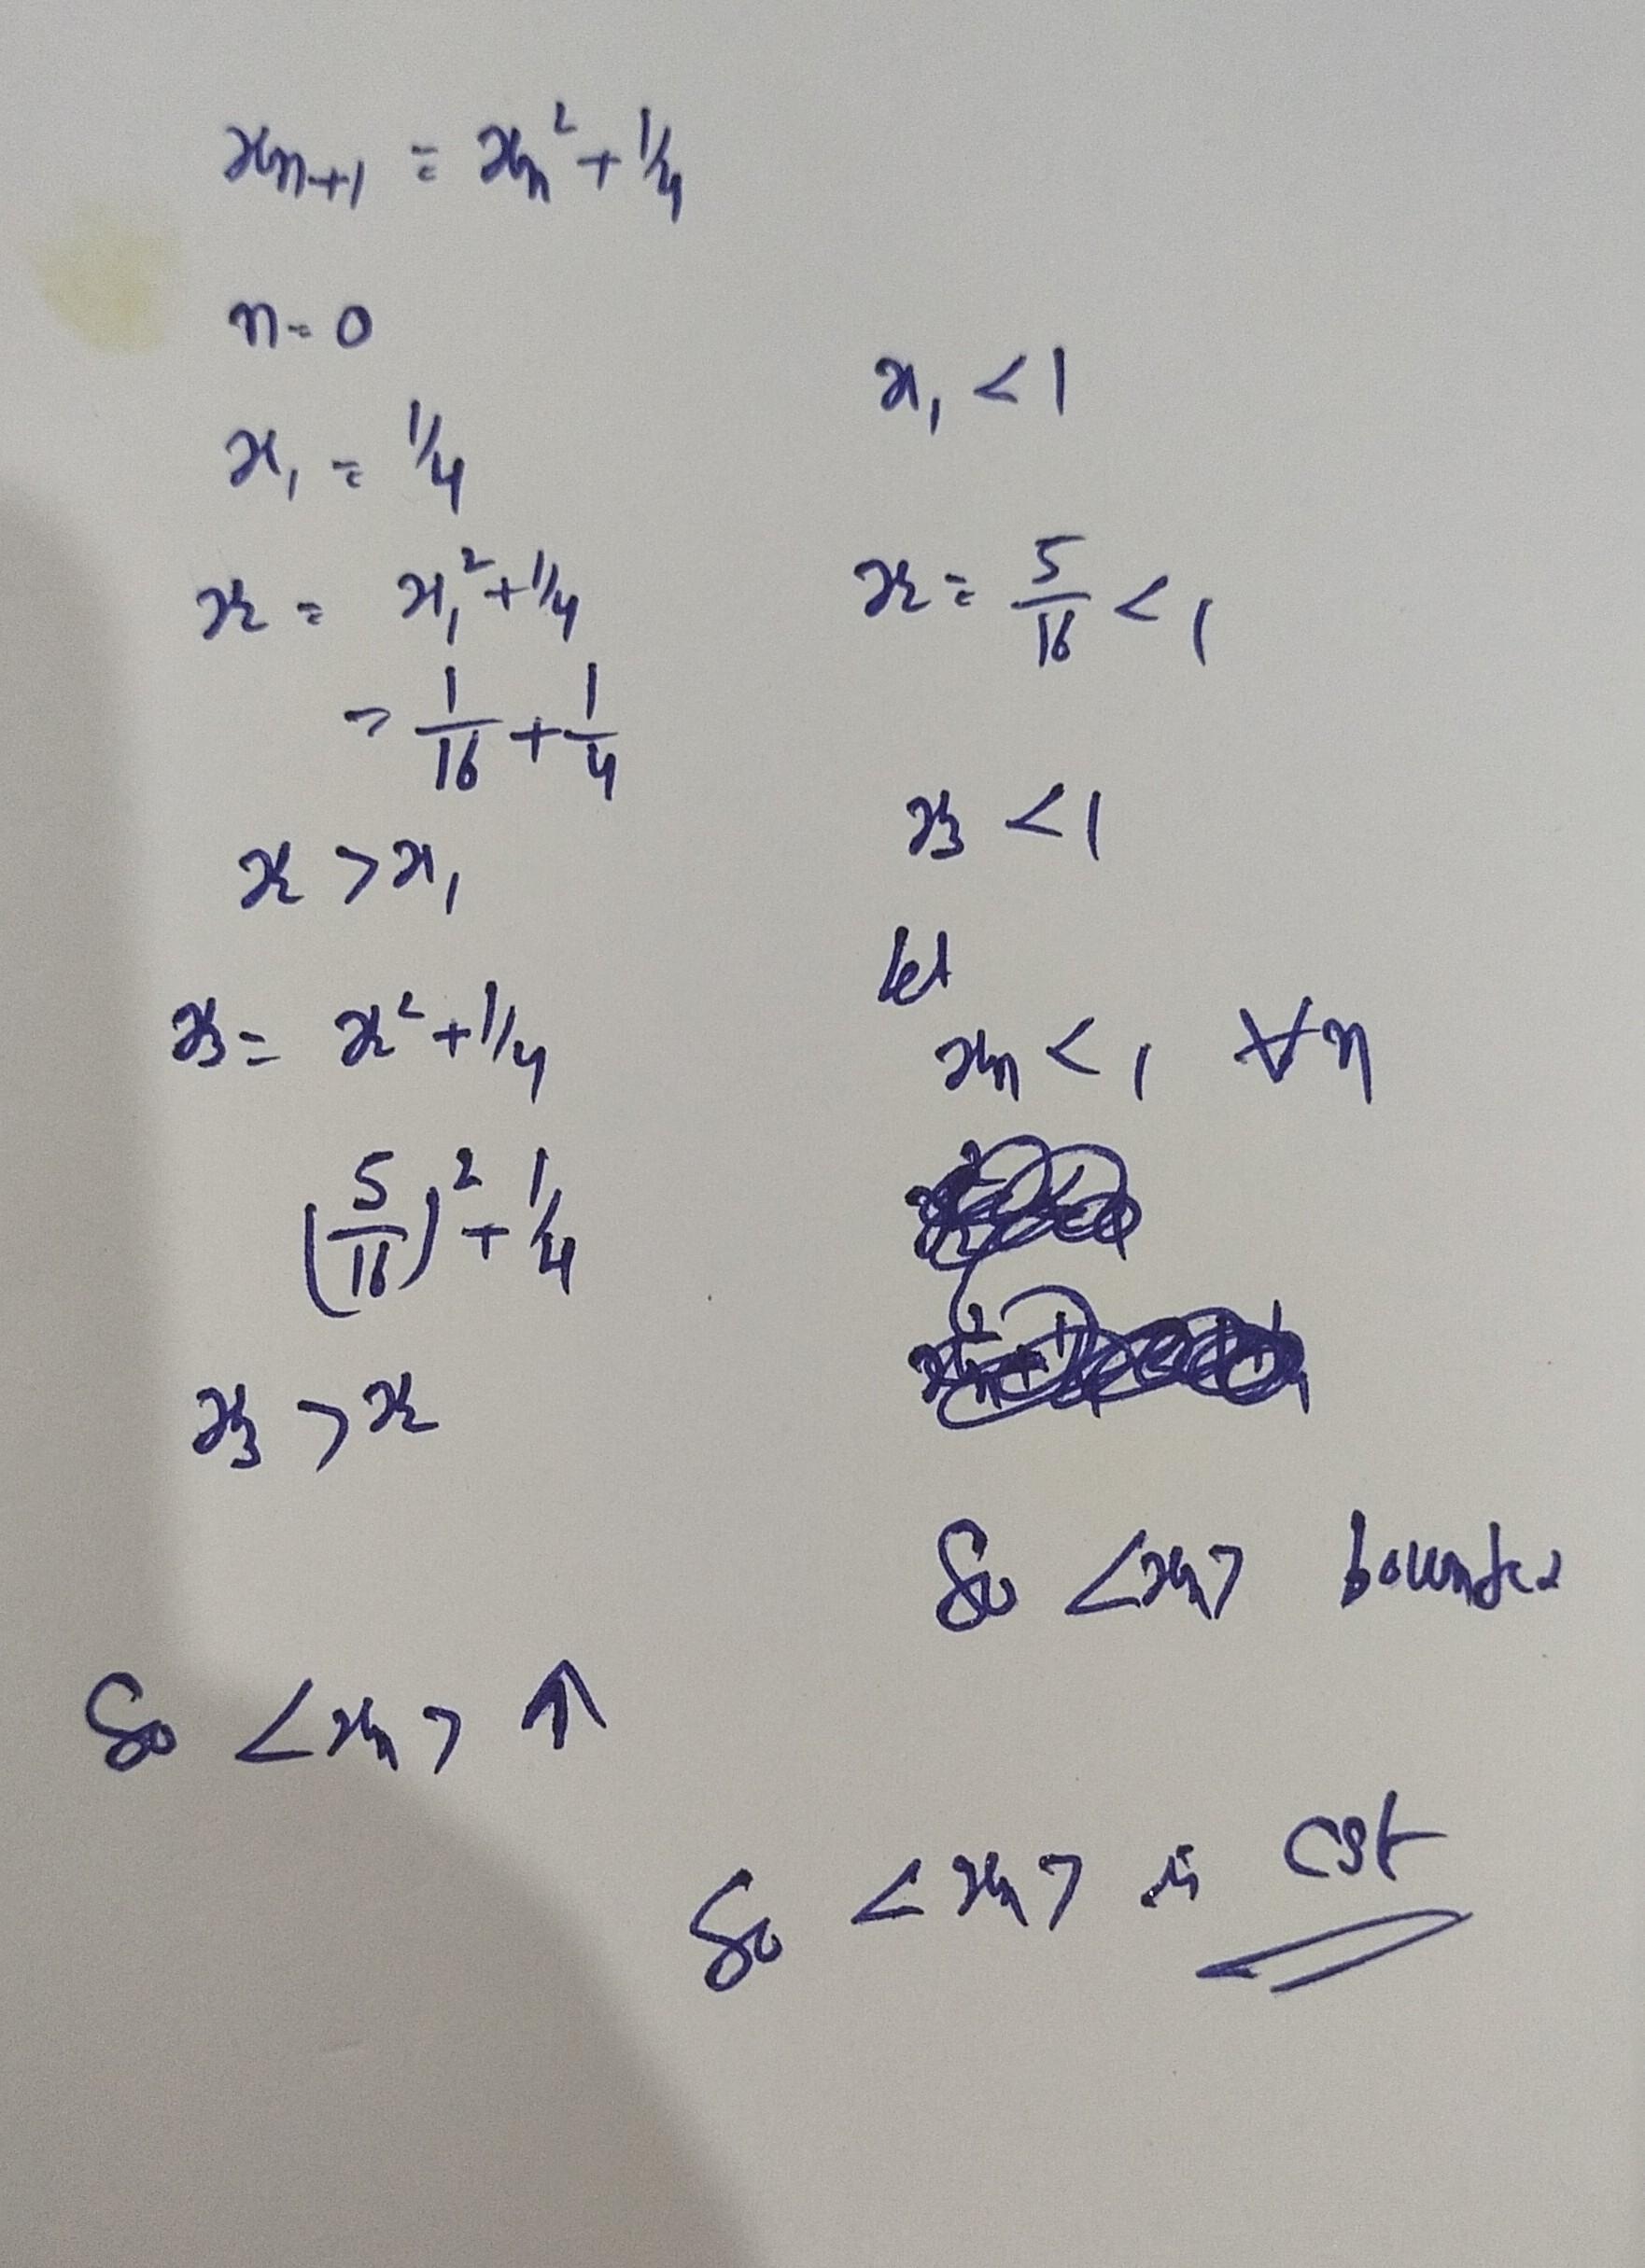 xₙ₊₁ = xₙ² + 1/4
n = 0
x₁ = 1/4
x₂ = x₁² + 1/4
= 1/16 + 1/4
x₂ > x₁
x₃ = x₂² + 1/4
(5/16)² + 1/4
x₃ > x₂
So <xₙ> ↑
x₁ < 1
x₂ = 5/16 < 1
x₃ < 1
let
xₙ < 1 ∀n
So <xₙ> bounded
So <xₙ> is cgt